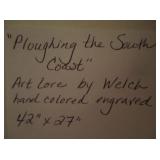 "Ploughing the South
Coast"
Art Lore by Welch
hand colored engraved
42" x 27"